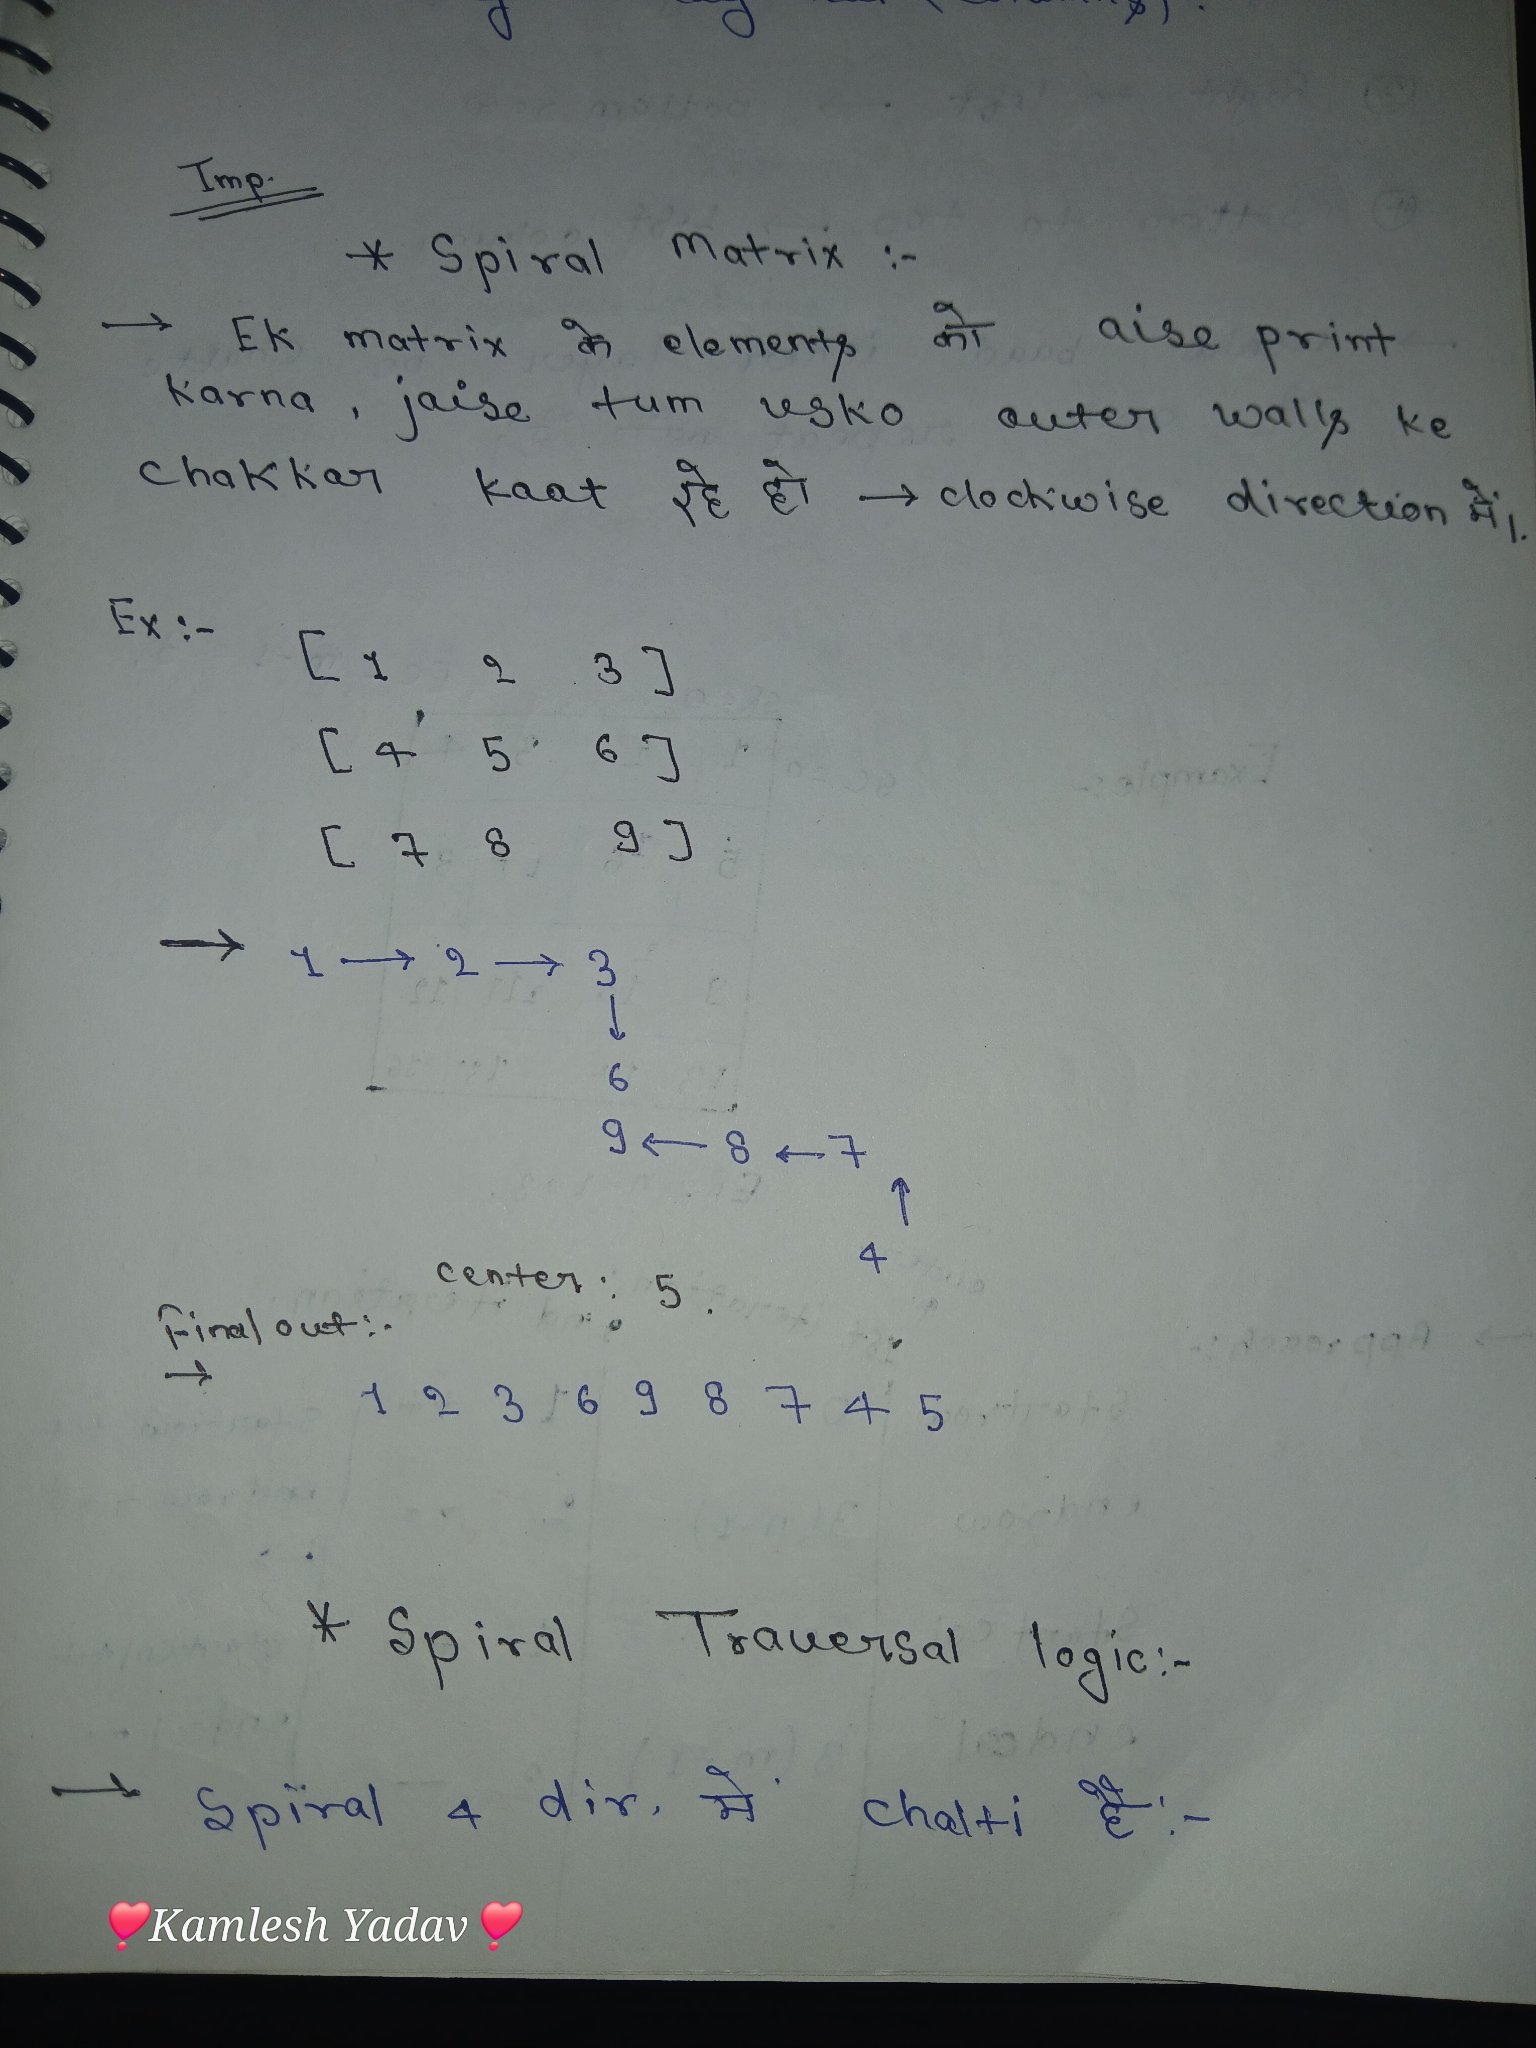 Imp.
* Spiral Matrix :-
→ Ek matrix के elements को aise print
karna, jaise tum usko outer walls ke
chakkar kaat रहे हो → clockwise direction में।.
Ex :-
[ 1 2 3 ]
[ 4 5 6 ]
[ 7 8 9 ]
→ 1 → 2 → 3
↓
6
9 ← 8 ← 7
↑
4
center : 5 .
Final out :-
→
1 2 3 6 9 8 7 4 5
* Spiral Traversal logic :-
→ Spiral 4 dir. में chalti है :-
❤Kamlesh Yadav❤